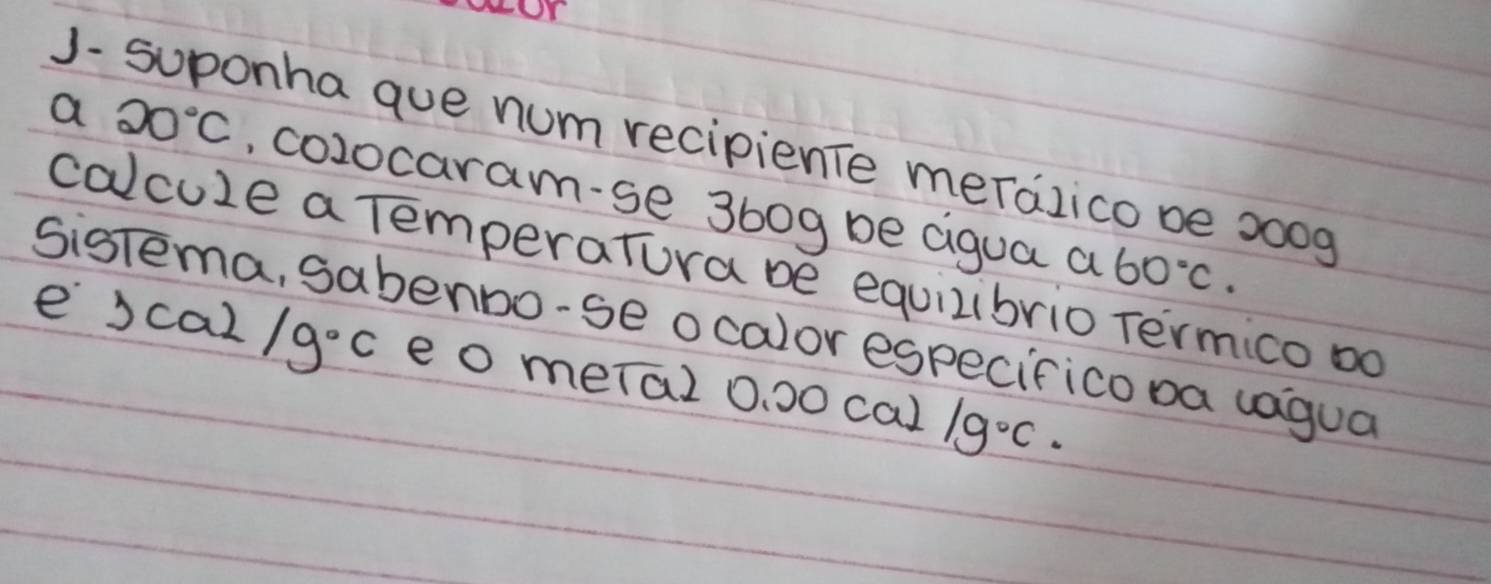 1- Suponha que num recipiente metálico de 200g
a 20°C, colocaram-se 360g de água a 60°C.
calcule a Temperatura de equilíbrio Térmico do
Sistema, sabendo-se o calor específico da água
é 1cal/g°C e o metal 0.20 cal/g°C.